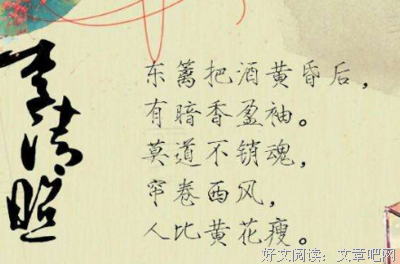 李清照
东篱把酒黄昏后，
有暗香盈袖。
莫道不销魂，
帘卷西风，
人比黄花瘦。
好文阅读：文章吧网